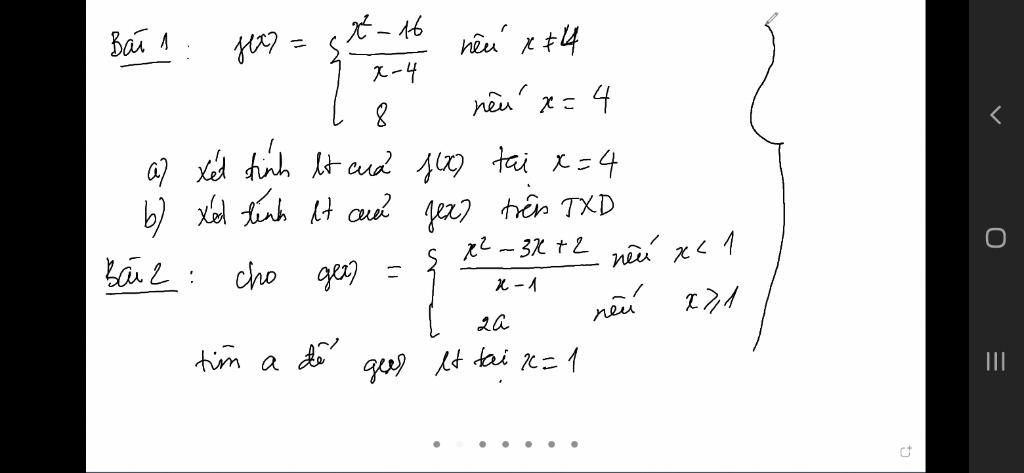 Bài 1: f(x) = { (x² - 16)/(x - 4) nếu x ≠ 4
8 nếu x = 4
a) xét tính lt của f(x) tại x = 4
b) xét tính lt của f(x) trên TXD
Bài 2: cho g(x) = { (x² - 3x + 2)/(x - 1) nếu x < 1
2a nếu x ⩾ 1
tìm a để g(x) lt tại x = 1